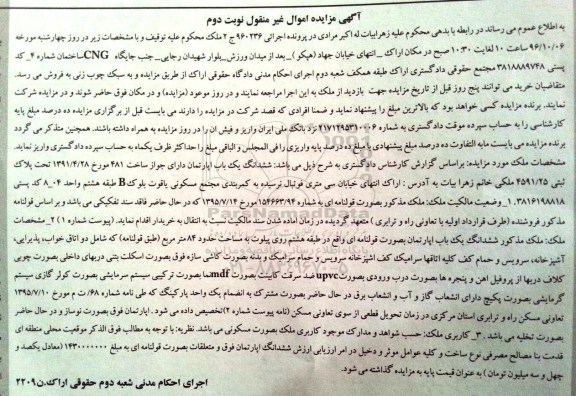 آگهی مزایده اموال غیر منقول نوبت دوم
به اطلاع عموم می رساند در رابطه با بدهی محکوم علیه زهرابیات له اکبر مرادی در پرونده اجرائی ۹۶۰۲۳۶ ج ۲ ملک محکوم علیه توقیف و با مشخصات زیر در روز چهارشنبه مورخه
۹۶/۱۰/۰۶ ساعت ۱۰ لغایت ۱۰:۳۰ صبح در مکان اراک _ انتهای خیابان جهاد (هپکو)_ بعد از میدان ورزش_ بلوار شهیدان رجایی_ جنب جایگاه CNG ساختمان شماره ۴_ کد
پستی ۳۸۱۸۸۸۹۷۴۸ مجتمع حقوقی دادگستری اراک طبقه همکف شعبه دوم اجرای احکام مدنی دادگاه حقوقی اراک از طریق مزایده و به سبک چوب زنی به فروش می رسد.
متقاضیان خرید می توانند پنج روز قبل از تاریخ مزایده جهت بازدید از ملک به این اجرا مراجعه نمایند و در روز موعود (مزایده) و در مکان فوق حاضر شوند و در مزایده شرکت
نمایند. برنده مزایده کسی خواهد بود که بالاترین مبلغ را پیشنهاد نماید و ضمنا افرادی که قصد شرکت در مزایده را دارند می بایست قبل از برگزاری مزایده ده درصد مبلغ پایه
کارشناسی را به حساب سپرده موقت دادگستری به شماره ۲۱۷۱۲۹۵۳۱۰۰۶ نزد بانک ملی ایران واریز و فیش آن را در روز مزایده به همراه داشته باشند. همچنین متذکر می گردد
برنده مزایده می بایست مابه التفاوت ده درصد مبلغ پیشنهادی با مبلغ ده درصد پایه واریزی را فی المجلس و الباقی مبلغ را حداکثر ظرف یکماه به حساب سپرده دادگستری واریز نماید.
مشخصات ملک مورد مزایده: براساس گزارش کارشناس دادگستری به شرح ذیل می باشد: ششدانگ یک باب آپارتمان دارای جواز ساخت ۴۸۱ مورخ ۱۳۹۱/۴/۲۸ تحت پلاک
ثبتی ۴۵۹۱/۲۵ ملکی خانم زهرا بیات به آدرس : اراک انتهای خیابان سی متری فوتبال نرسیده به کمربندی مجتمع مسکونی یاقوت بلوک B طبقه هشتم واحد ۰۴_۸ کد پستی
۳۸۱۶۱۹۸۸۱۸. ۱_ وضعیت مالکیت ملک: ملک مذکور بصورت قولنامه ای به شماره ۱۵۴۶۶۳/۹۴ مورخ ۱۳۹۵/۷/۱۴ که در حال حاضر فاقد سند تفکیکی می باشد و بر اساس قولنامه
مذکور فروشنده (طرف قرارداد اولیه با تعاونی راه و ترابری) متعهد گردیده در زمان آماده شدن سند مالکیت نسبت به انتقال به خریدار اقدام نماید. (پیوست شماره ۱) ۲_ مشخصات
ملک: ملک مذکور ششدانگ یک باب آپارتمان بصورت قولنامه ای واقع در طبقه هشتم روی پیلوت به مساحت حدود ۸۴ متر مربع (طبق قولنامه) که شامل دو اتاق خواب، پذیرایی،
آشپزخانه، سرویس و حمام کف کلیه اتاقها سرامیک کف آشپزخانه سرویس و حمام سرامیک و بدنه بصورت کاشی سازه فوق بصورت اسکلت بتنی دربهای داخلی بصورت چوبی
کلاف دربها از پروفیل آهن و پنجره ها بصورت درب ورودی بصورت upvc ضد سرقت کابینت بصورت mdf نما بصورت ترکیبی سیستم سرمایشی بصورت کولر گازی سیستم
گرمایشی بصورت پکیج دارای انشعاب گاز و آب و انشعاب برق در حال حاضر بصورت مشترک به انضمام یک واحد پارکینگ که طی نامه شماره ۶۸/ت م مورخ ۱۳۹۵/۷/۱۰
تعاونی مسکن راه و ترابری استان مرکزی در زمان تحویل قطعی از سوی تعاونی مسکن (نامه پیوست شماره ۲) تخصیص داده می شود. آپارتمان فوق بصورت نوساز و در حال حاضر
بصورت تخلیه می باشد . ۳_ کاربری ملک: حسب شواهد و مدارک موجود کاربری ملک بصورت مسکونی می باشد. نظریه: با توجه به مطالب فوق الذکر موقعیت محلی منطقه ای
قدمت بنا مصالح مصرفی نوع ساخت و کلیه عوامل موثر و دخیل در امر ارزیابی ارزش ششدانگ آپارتمان فوق و متعلقات بصورت قولنامه ای به مبلغ ۱۴۳۰۰۰۰۰۰۰ (معادل یکصد و
چهل و سه میلیون تومان) به عنوان قیمت پایه به مزایده گذاشته می شود.
اجرای احکام مدنی شعبه دوم حقوقی اراک. ن ۲۲۰۹